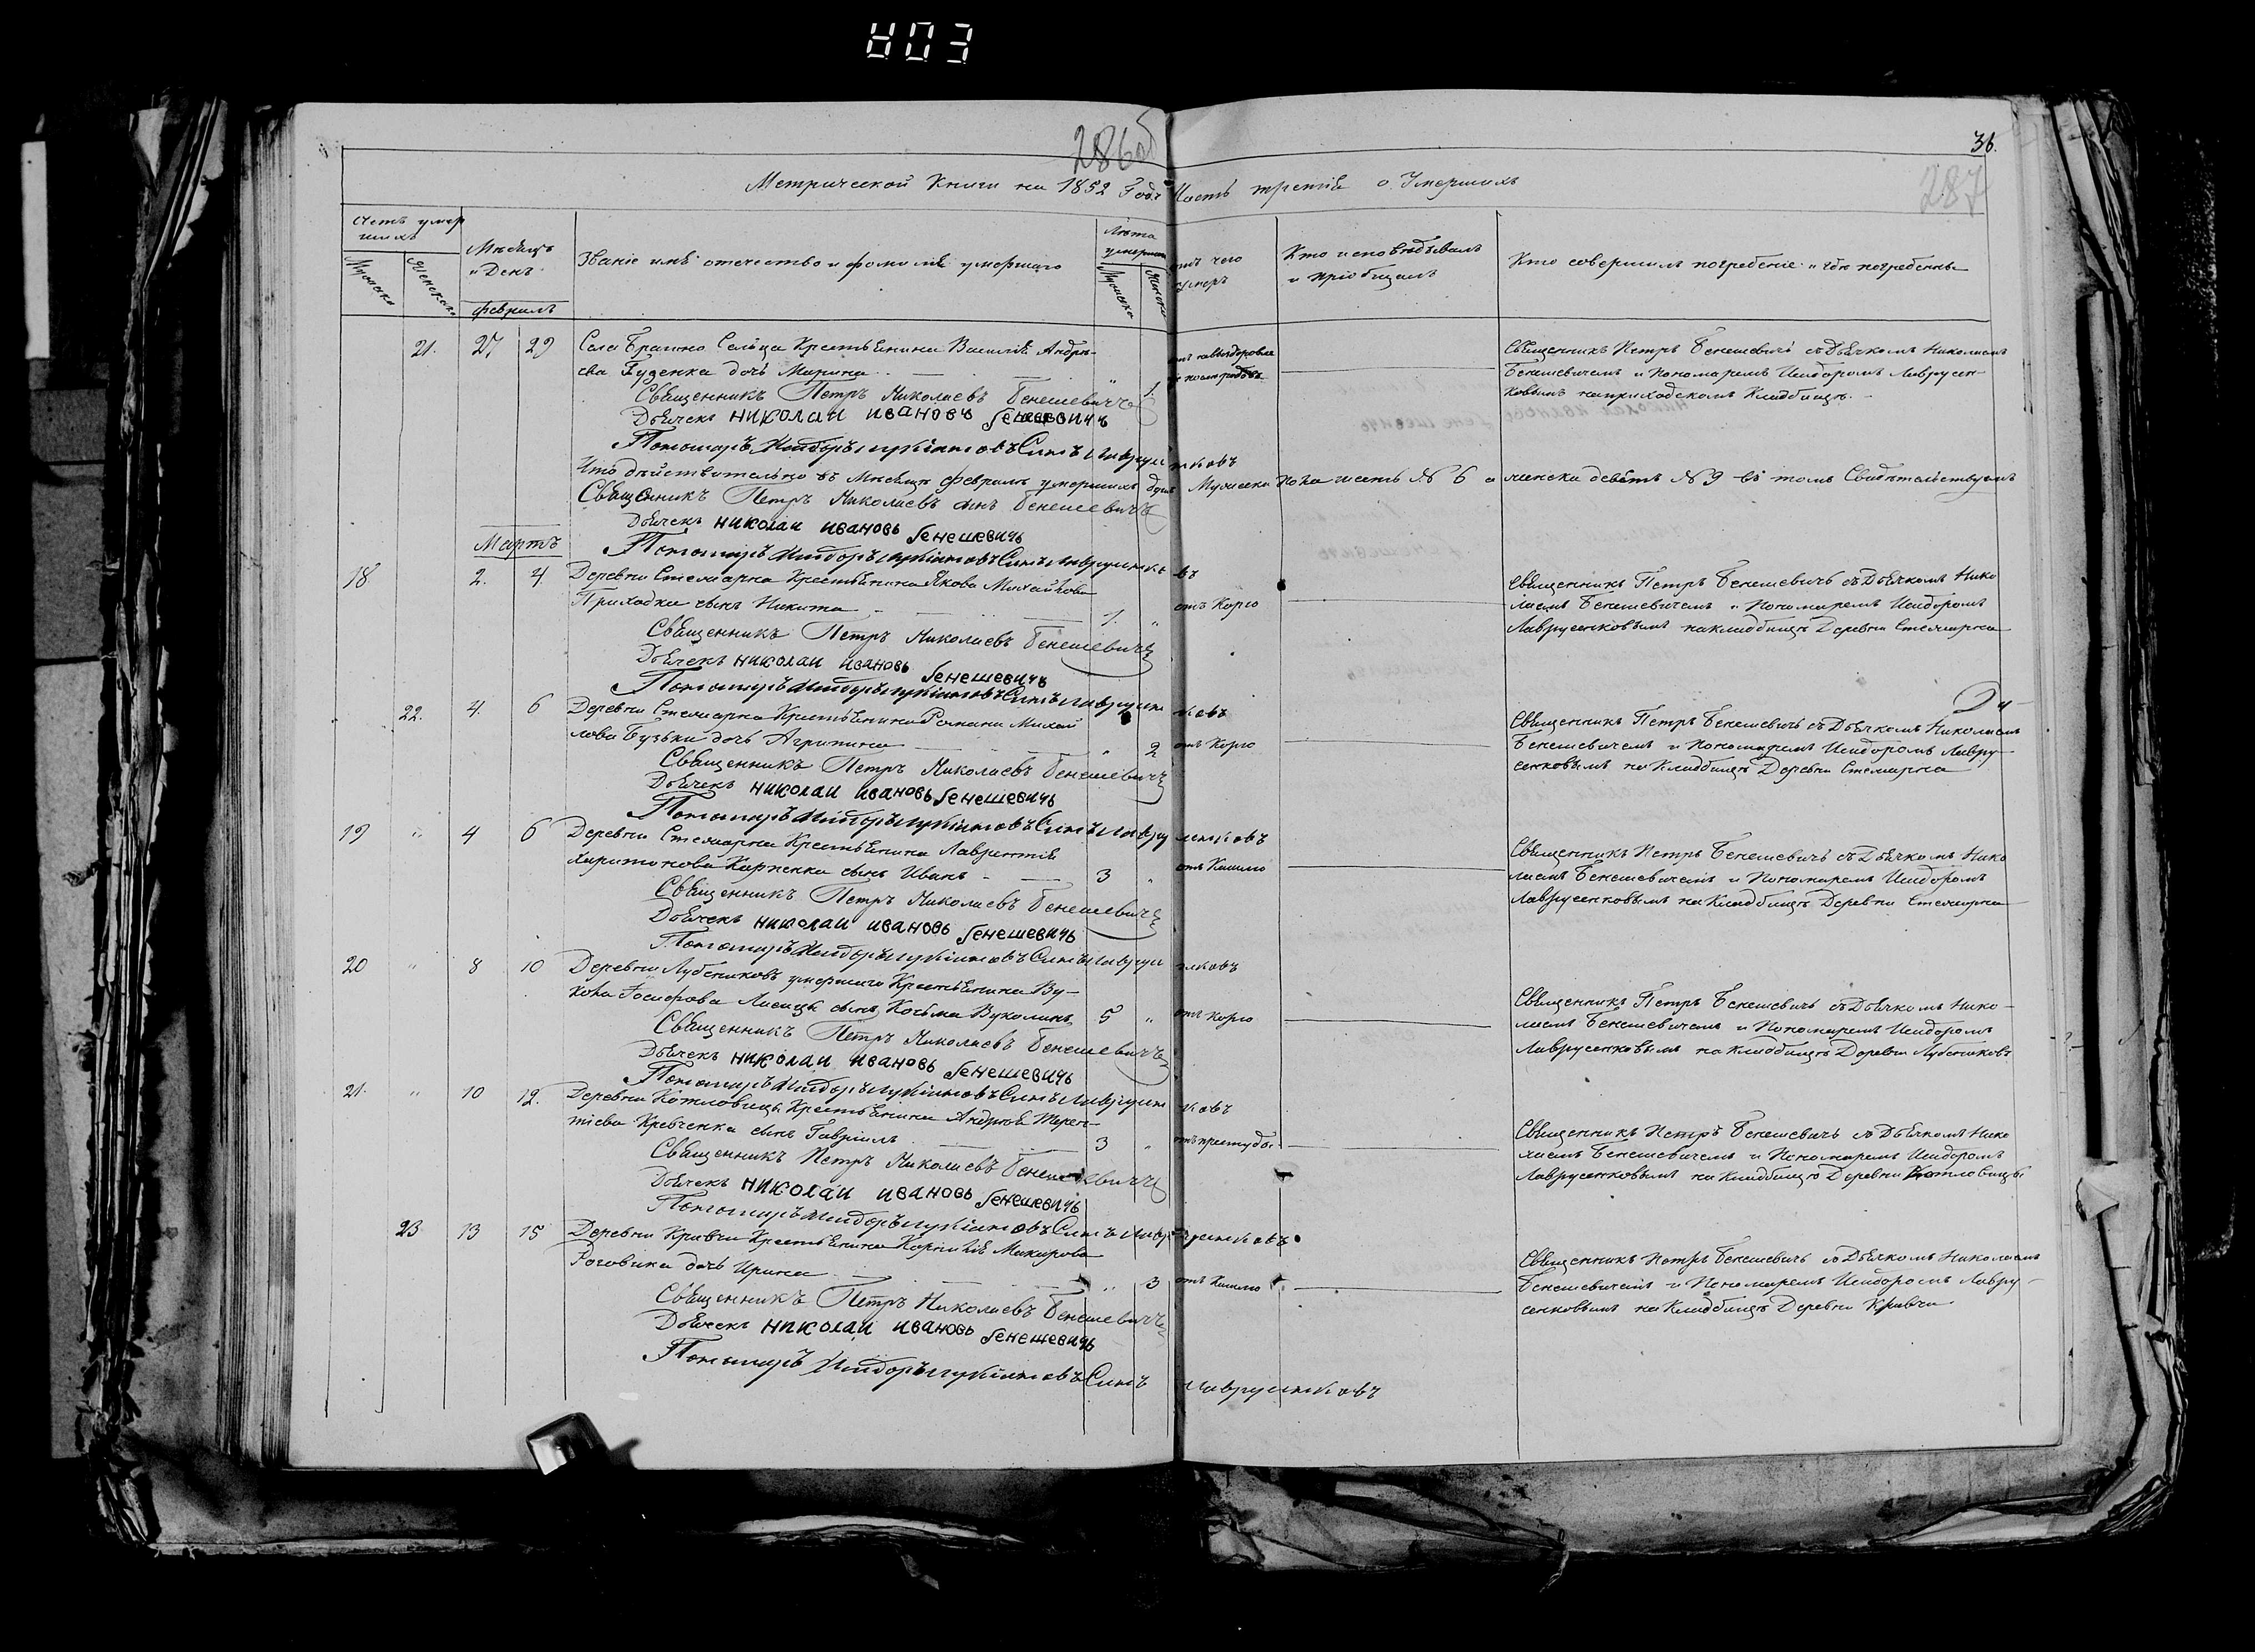 803
286об
36.
287
Метрической Книги на 1852 Годъ Часть третія о Умершихъ
Счетъ умер
шихъ
Мужеска
Женскаго
Мѣсяцъ
и День
Февраль
Званіе имя отечество и фамилія умершаго
Лѣта
умершаго
Мужеска
Женска
отъ чего
умеръ
Кто исповѣдывалъ
и пріобщалъ
Кто совершилъ погребеніе и гдѣ погребены
21. 27 29 Села Брагино Сельца Крестьянина Василія Андре-
ева Гуденка дочь Марина " 1.
Священникъ Петръ Бенешевичь съ Дьячкомъ Николаемъ
Бенешевичемъ и Пономаремъ Исидоромъ Лаврусен-
ковымъ на приходскомъ Кладбищѣ.
Священникъ Петръ Николаевъ Бенешевичъ
Дьячекъ николаи ивановъ бенешевичъ
Пономаръ Исидоръ Лукіановъ Синъ Лаврусенковъ
Что дѣйствительно въ Мѣсяцѣ Февралѣ умершихъ душъ Мужеска пола шесть № 6 а женска девять № 9 въ томъ Свидѣтельствуемъ
Священникъ Петръ Николаевъ сынъ Бенешевичъ
Дьячекъ николаи ивановъ бенешевичь
Пономаръ Исидоръ Лукіановъ Синъ Лаврусенковъ
Мартъ
18 2. 4. Деревни Стежарна Крестьянина Якова Михайлова
Приходка сынъ Никита 1. " отъ Корю
Священникъ Петръ Бенешевичь съ Дьячкомъ Нико
лаемъ Бенешевичемъ и Пономаремъ Исидоромъ
Лаврусенковымъ на кладбищѣ Деревни Стежарна
Священникъ Петръ Николаевъ Бенешевичъ
Дьячекъ николаи ивановъ бенешевичъ
Пономаръ Исидоръ Лукіановъ Синъ Лаврусенковъ
22. 4. 6 Деревни Стежарна Крестьянина Романа Михай
лова Бузька дочь Агрипина " 2 отъ Корю
Священникъ Петръ Бенешевичь съ Дьячкомъ Николаемъ
Бенешевичемъ и Пономаремъ Исидоромъ Лавру-
сенковымъ на Кладбищѣ Деревни Стежарна
Священникъ Петръ Николаевъ Бенешевичъ
Дьячекъ николаи ивановъ бенешевичь
Пономаръ Исидоръ Лукіановъ Синъ Лаврусенковъ
19 " 4 6 Деревни Стежарна Крестьянина Лаврентія
Харитонова Карпенка сынъ Иванъ 3 " отъ Кашлю
Священникъ Петръ Бенешевичь съ Дьячкомъ Нико
лаемъ Бенешевичемъ и Пономаремъ Исидоромъ
Лаврусенковымъ на Кладбищѣ Деревни Стежарна
Священникъ Петръ Николаевъ Бенешевичъ
Дьячекъ николаи ивановъ бенешевичь
Пономаръ Исидоръ Лукіановъ Синъ Лаврусенковъ
20 " 8 10 Деревни Лубениковъ умершаго Крестьянина Ву-
кола Іосифова Лисицы сынъ Козьма Вуколинъ 5 " отъ Корю
Священникъ Петръ Бенешевичь съ Дьячкомъ Нико-
лаемъ Бенешевичемъ и Пономаремъ Исидоромъ
Лаврусенковымъ на Кладбищѣ Деревни Лубениковъ
Священникъ Петръ Николаевъ Бенешевичъ
Дьячекъ николаи ивановъ бенешевичь
Пономаръ Исидоръ Лукіановъ Синъ Лаврусенковъ
21. " 10 12. Деревни Котловицы Крестьянина Андрея Терен-
тіева Кравченка сынъ Гавріилъ 3 " отъ простуды
Священникъ Петръ Бенешевичь съ Дьячкомъ Нико
лаемъ Бенешевичемъ и Пономаремъ Исидоромъ
Лаврусенковымъ на Кладбищѣ Деревни Котловицы
Священникъ Петръ Николаевъ Бенешевичъ
Дьячекъ николаи ивановъ бенешевичь
Пономаръ Исидоръ Лукіановъ Синъ Лаврусенковъ
23 13 15 Деревни Кривчи Крестьянина Корнилія Макарова
Роговика дочь Ирина " 3 отъ Кашлю
Священникъ Петръ Бенешевичь съ Дьячкомъ Николаемъ
Бенешевичемъ и Пономаремъ Исидоромъ Лавру-
сенковымъ на Кладбищѣ Деревни Кривчи
Священникъ Петръ Николаевъ Бенешевичъ
Дьячекъ николаи ивановъ бенешевичь
Пономаръ Исидоръ Лукіановъ Синъ Лаврусенковъ